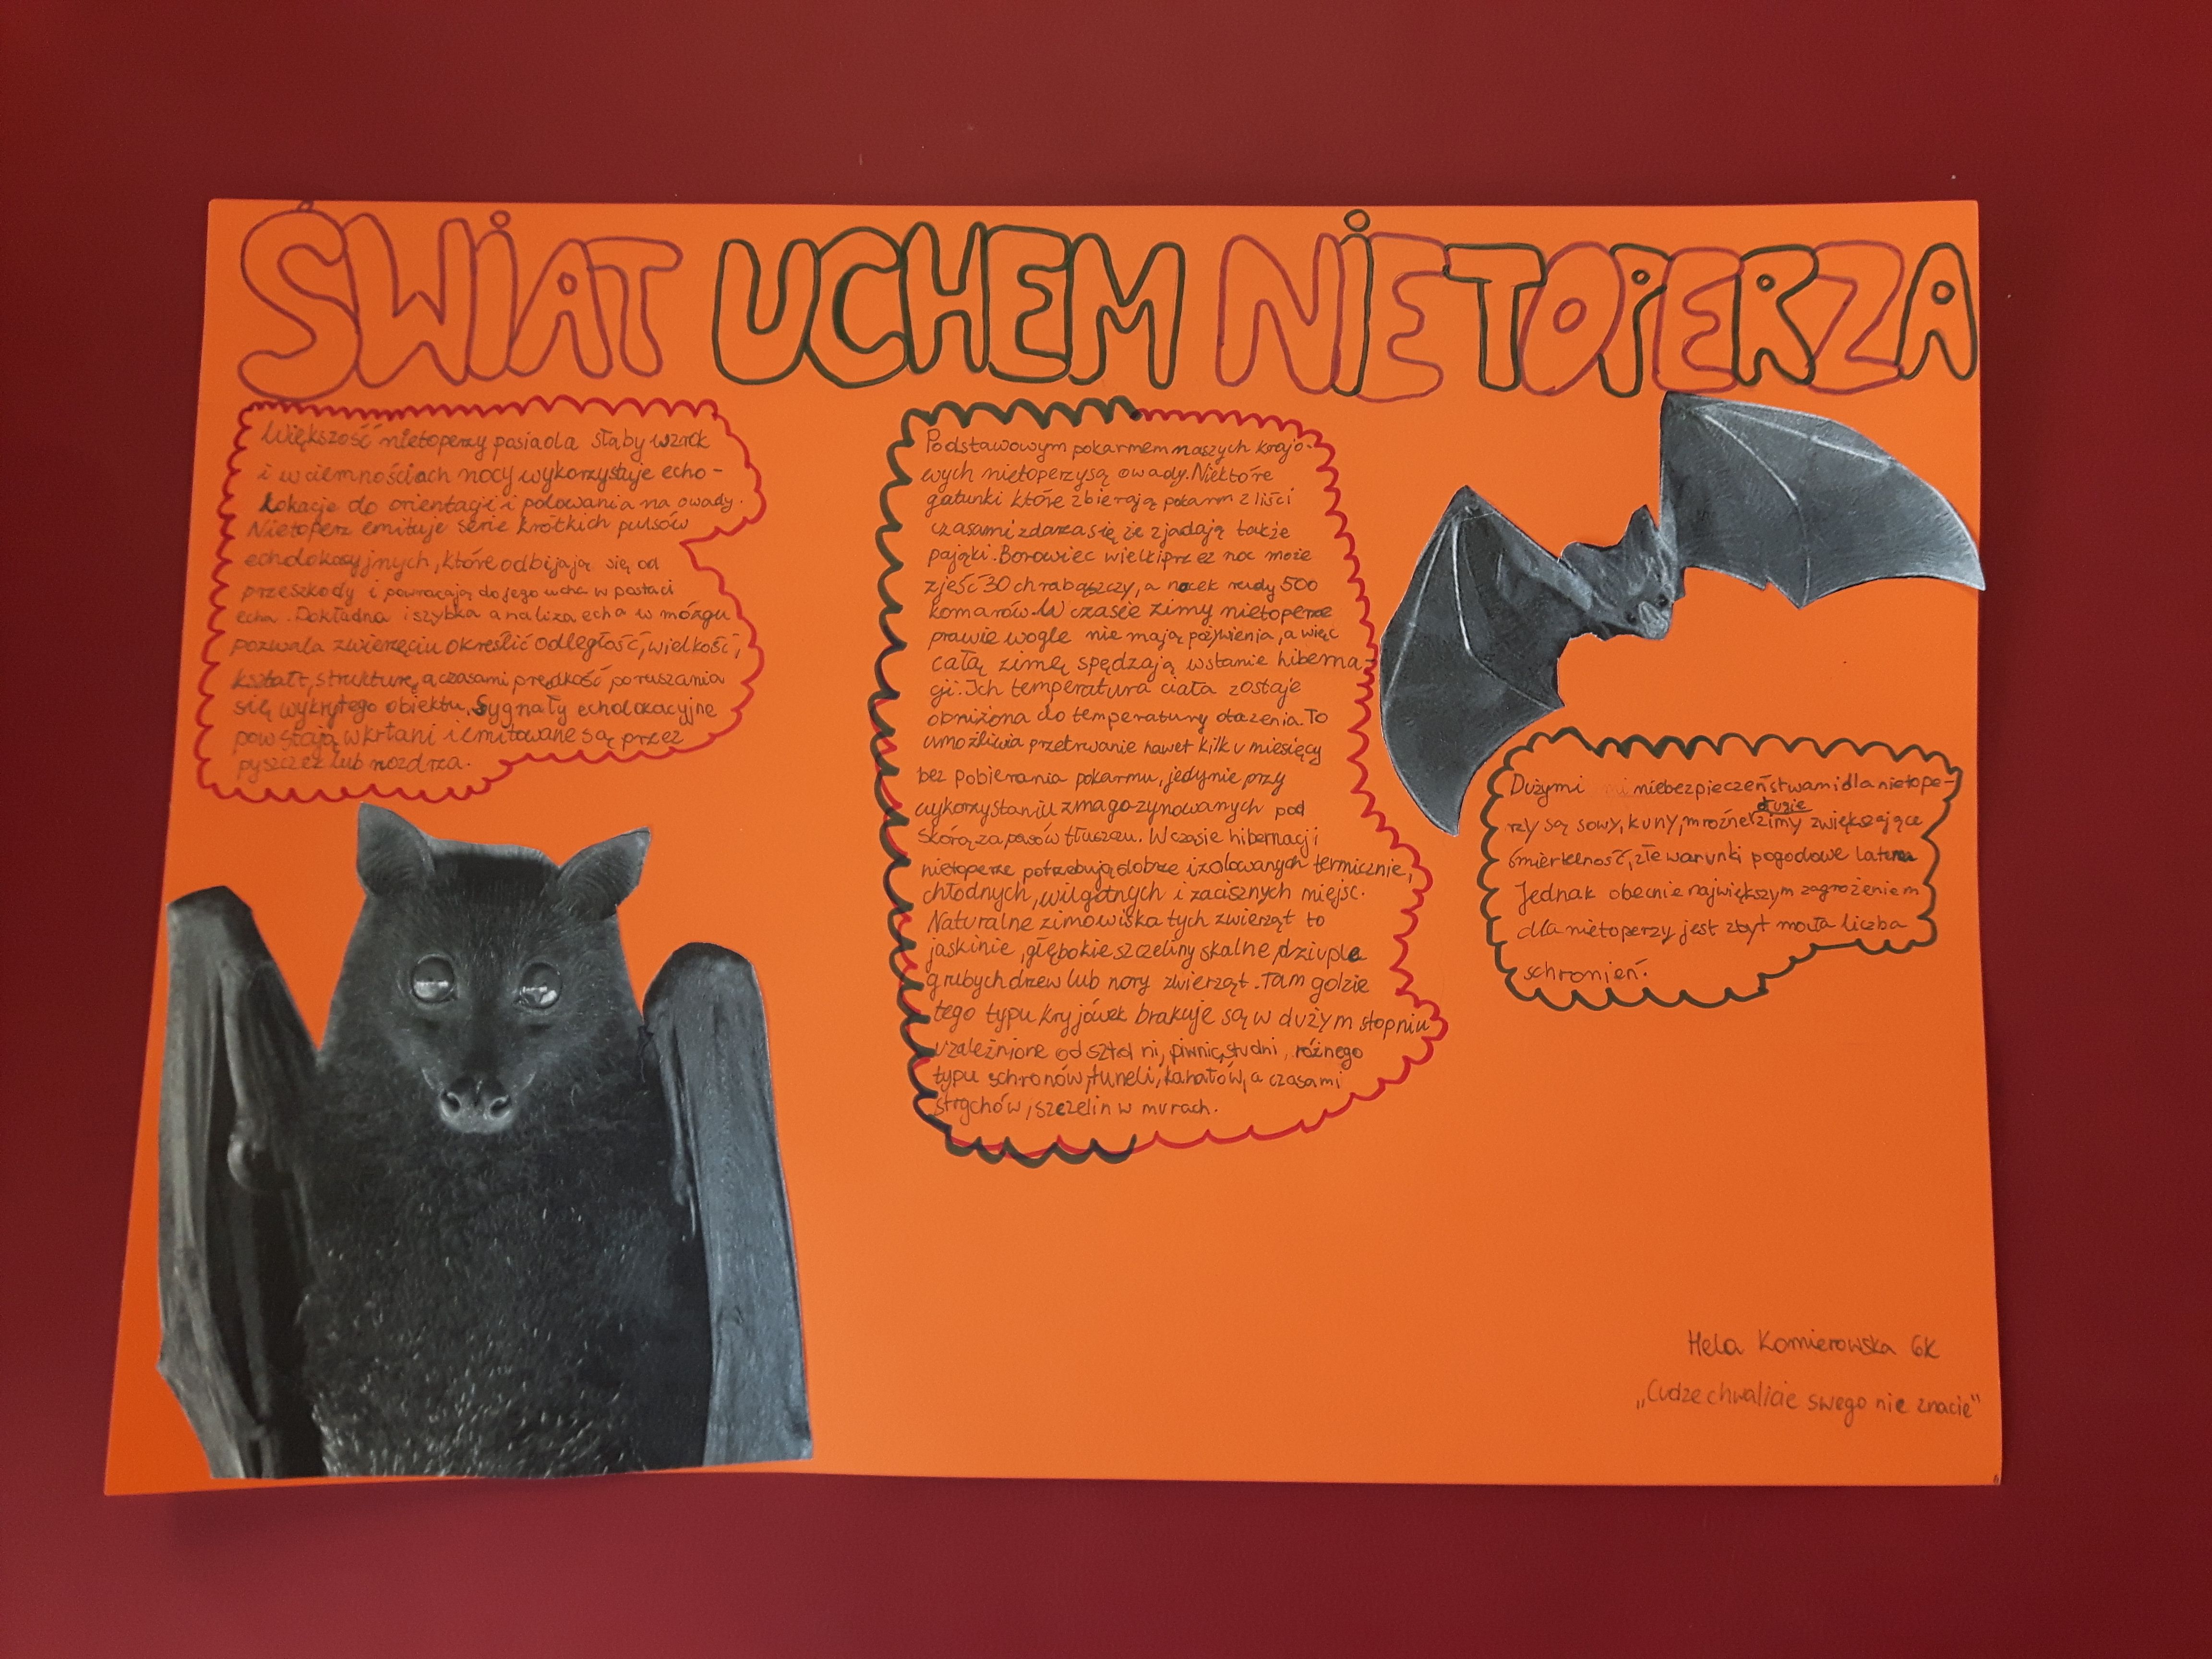 ŚWIAT UCHEM NIETOPERZA
Większość nietoperzy posiada słaby wzrok
i w ciemnościach nocy wykorzystuje echo-
lokacje do orientacji i polowania na owady.
Nietoperz emituje serie krótkich pulsów
echolokacyjnych, które odbijają się od
przeszkody i powracają do jego ucha w postaci
echa. Dokładna i szybka analiza echa w mózgu
pozwala zwierzęciu określić odległość, wielkość,
kształt, strukturę, a czasami prędkość poruszania
się wykrytego obiektu. Sygnały echolokacyjne
powstają w krtani i emitowane są przez
pyszczek lub nozdrza.
Podstawowym pokarmem naszych krajo-
wych nietoperzy są owady. Niektóre
gatunki które zbierają pokarm z liści
czasami zdarza się że zjadają także
pająki. Borowiec wielki przez noc może
zjeść 30 chrabąszczy, a nocek rudy 500
komarów. W czasie zimy nietoperze
prawie wogle nie mają pożywienia, a więc
całą zimę spędzają w stanie hiberna
cji. Ich temperatura ciała zostaje
obniżona do temperatury otozenia. To
umożliwia przetrwanie nawet kilku miesięcy
bez pobierania pokarmu, jedynie przy
wykorzystaniu zmagozynowanych pod
skórą zapasów tłuszczu. W czasie hibernacji
nietoperze potrzebują dobrze izolowanych termicznie,
chłodnych, wilgotnych i zacisznych miejsc.
Naturalne zimowiska tych zwierząt to
jaskinie, głębokie szczeliny skalne, dziuple
grubych drzew lub nory zwierząt. Tam gdzie
tego typu kryjówek brakuje są w dużym stopniu
uzależnione od sztolni, piwnic, studni, różnego
typu schronów, tuneli, kanałów, a czasami
strychów, szczelin w murach.
Dużymi niebezpieczeństwami dla nietope-
rzy są sowy, kuny, mroźne długie zimy zwiększające
śmiertelność, złe warunki pogodowe latem
Jednak obecnie największym zagrożeniem
dla nietoperzy jest zbyt mała liczba
schronień.
Hela Komierowska 6K
„Cudze chwalicie swego nie znacie"